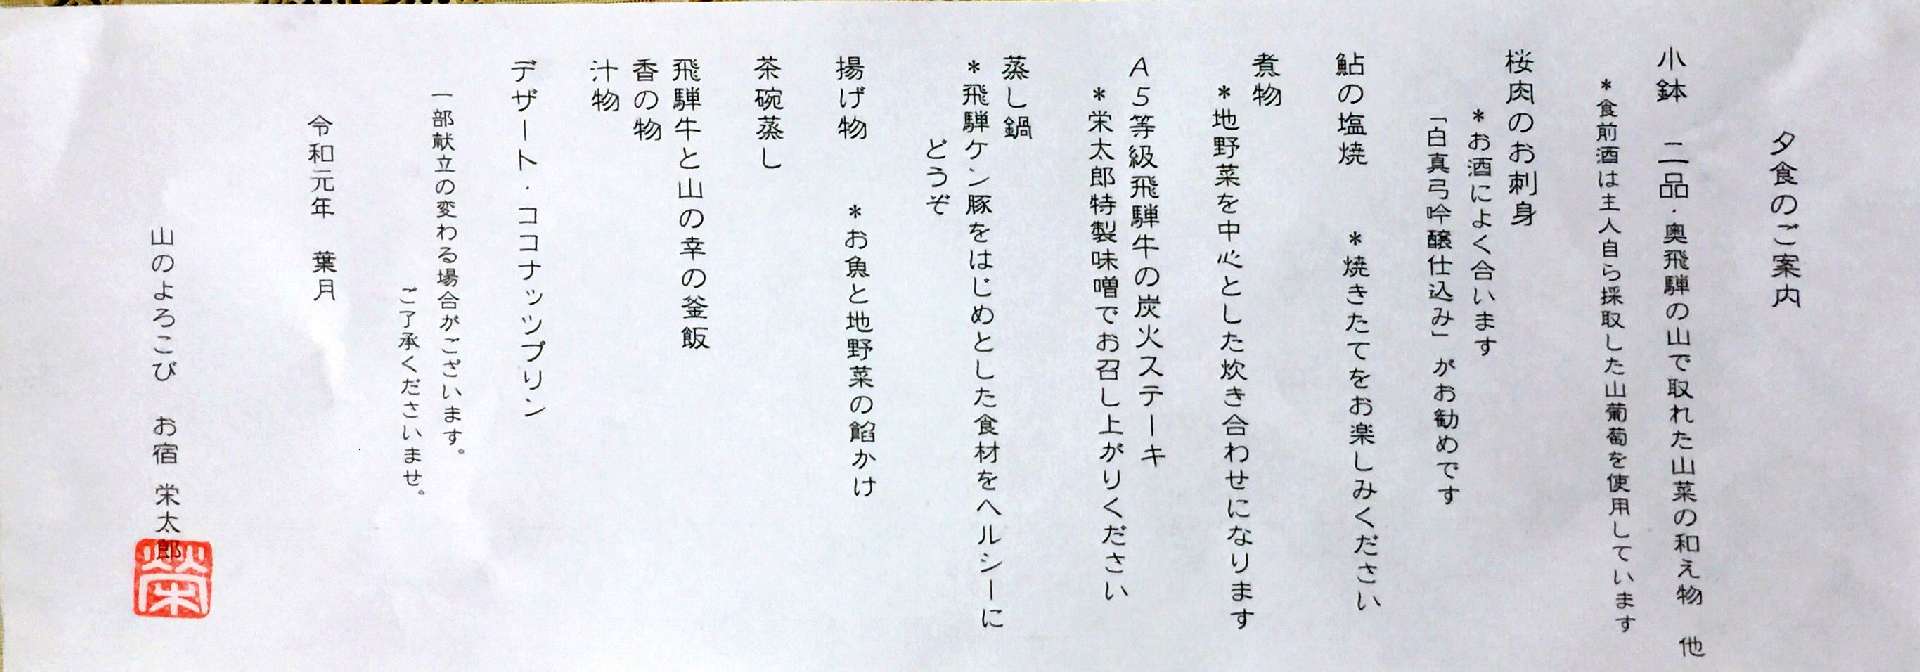 夕食のご案内
小鉢 二品・奥飛騨の山で取れた山菜の和え物 他
＊食前酒は主人自ら採取した山葡萄を使用しています
桜肉のお刺身
＊お酒によく合います
「白真弓吟醸仕込み」がお勧めです
鮎の塩焼 ＊焼きたてをお楽しみください
煮物
＊地野菜を中心とした炊き合わせになります
A5等級飛騨牛の炭火ステーキ
＊栄太郎特製味噌でお召し上がりください
蒸し鍋
＊飛騨ケン豚をはじめとした食材をヘルシーに
どうぞ
揚げ物 ＊お魚と地野菜の餡かけ
茶碗蒸し
飛騨牛と山の幸の釜飯
香の物
汁物
デザート・ココナッツプリン
一部献立の変わる場合がございます。
ご了承くださいませ。
令和元年 葉月
山のよろこび お宿 栄太郎
栄